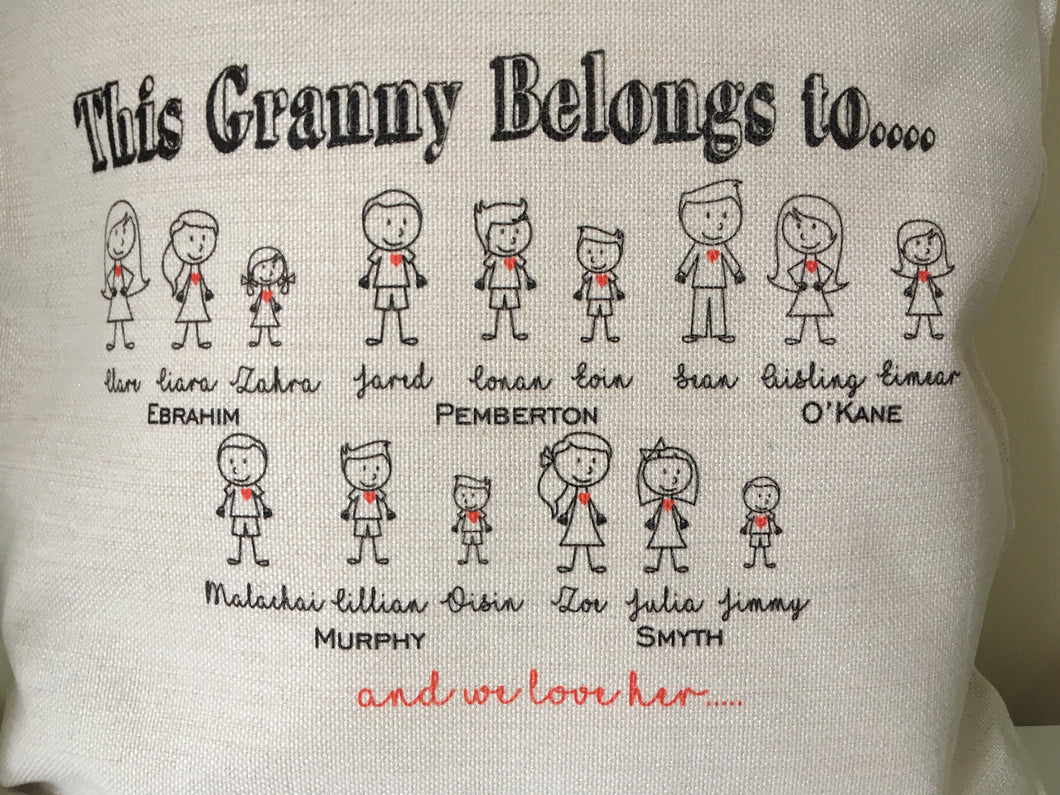 This Granny Belongs to....
Clare Ciara Zahra Jared Conan Eoin Sean Aisling Eimear
EBRAHIM PEMBERTON O'KANE
Malachai Cillian Oisin Zoe Julia Jimmy
MURPHY SMYTH
and we love her.....